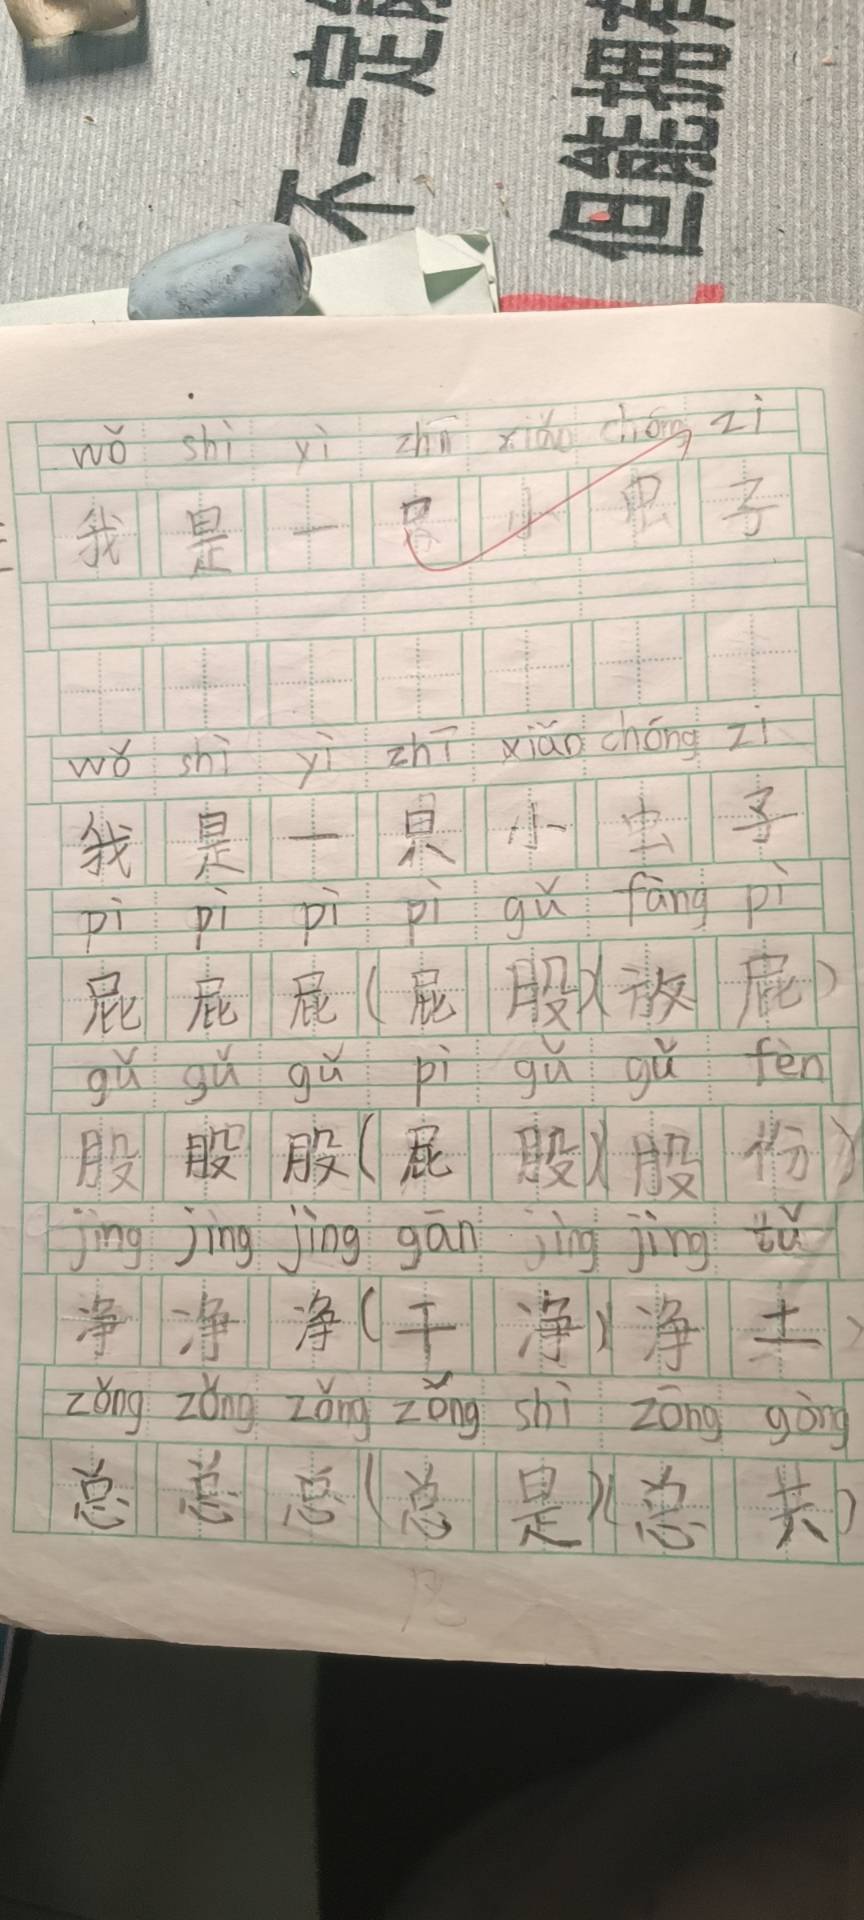 不一定
但能拥有
wǒ shì yì zhī xiǎo chóng zi
我 是 一 只 小 虫 子
wǒ shì yì zhī xiǎo chóng zi
我 是 一 只 小 虫 子
pì pì pì pì gǔ fàng pì
屁 屁 屁 (屁 股)(放 屁)
gǔ gǔ gǔ pì gǔ gǔ fèn
股 股 股 (屁 股)(股 份)
jìng jìng jìng gān jìng jìng tǔ
净 净 净 (干 净)(净 土)
zǒng zǒng zǒng zǒng shì zǒng gòng
总 总 总 (总 是)(总 共)